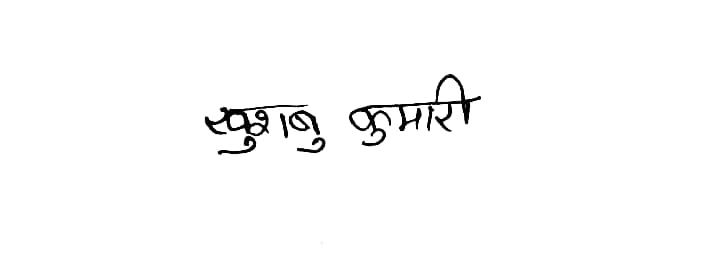 खुशबु कुमारी